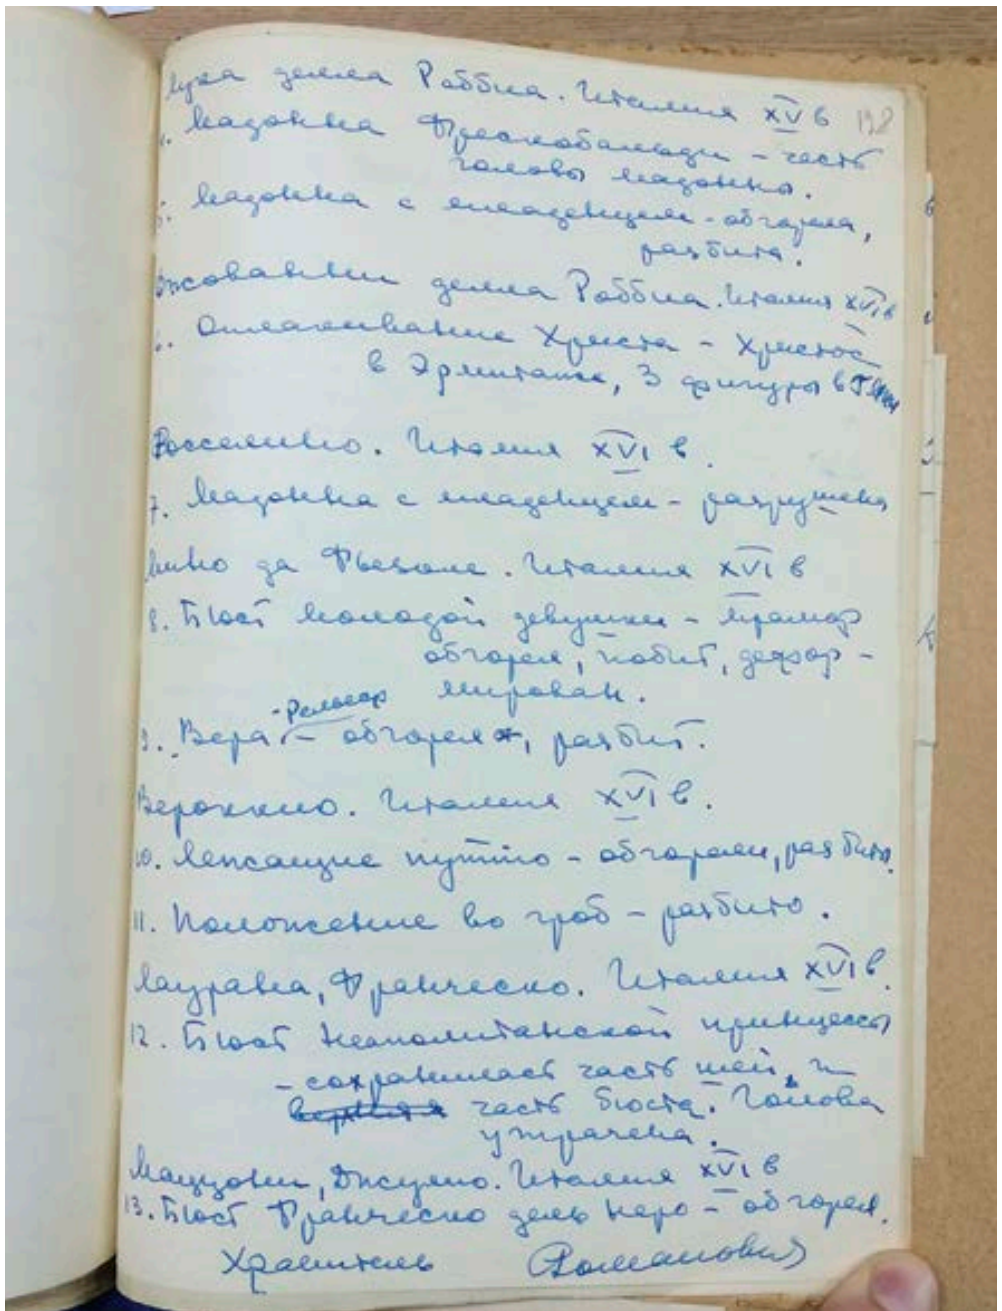 Лука делла Роббиа. Италия XV в 198
4. Мадонна Фрескобальди - часть
головы мадонны.
5. Мадонна с младенцем - обгорела,
разбита.
Джованни делла Роббиа. Италия XVI в
6. Оплакивание Христа - Христос
в Эрмитаже, 3 фигуры в ГМИИ
Росселино. Италия XVI в.
7. Мадонна с младенцем - разрушена
Мино да Фьезоле. Италия XVI в
8. Бюст молодой девушки - мрамор
обгорел, побит, дефор-
мирован.
- рельеф
9. Вера - обгорел, разбит.
Вероккио. Италия XVI в.
10. Лежащие путто - обгорели, разбиты.
11. Положение во гроб - разбито.
Лаурана, Франческо. Италия XVI в.
12. Бюст Неаполитанской принцессы
- сохранилась часть шеи, и
верхняя часть бюста. Голова
утрачена.
Маццони, Джулио. Италия XVI в
13. Бюст Франческо дель Неро - обгорел.
Хранитель Романович